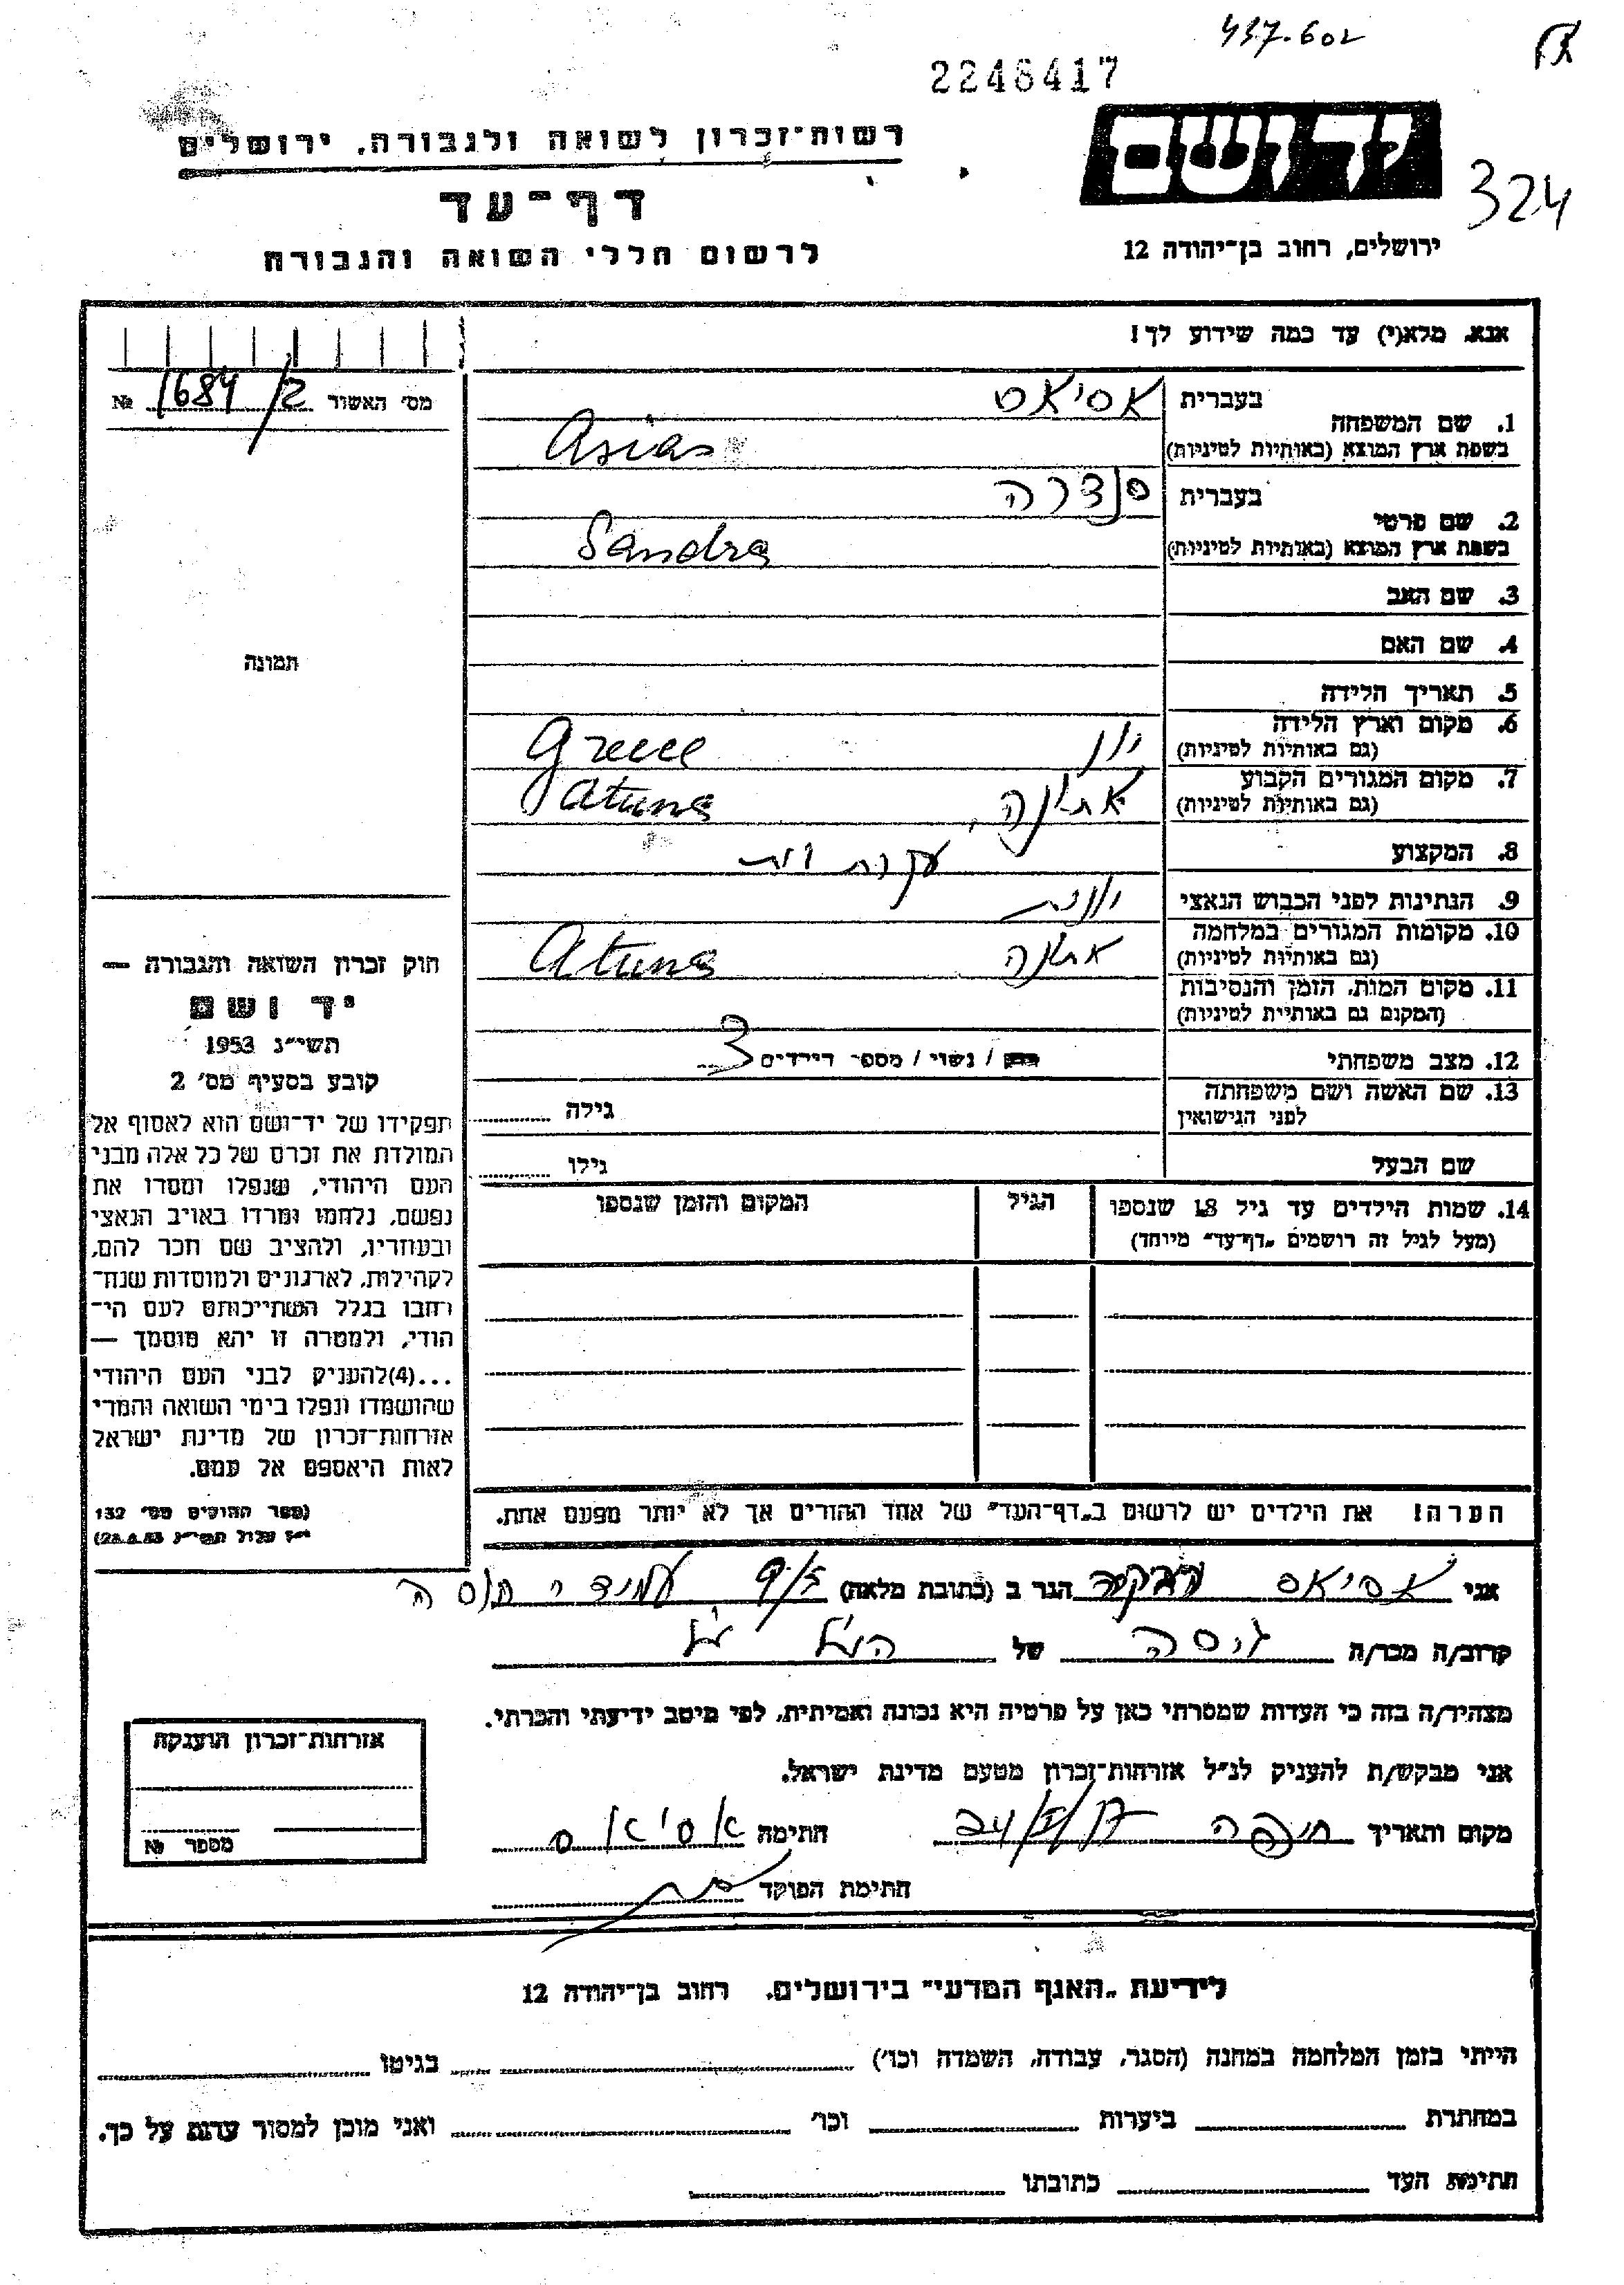 437.602
2246417
יד ושם
רשות־זכרון לשואה ולגבורה, ירושלים
324
דף־עד
ירושלים, רחוב בן־יהודה 12
לרשום חללי השואה והגבורה
אנא, מלא(י) עד כמה שידוע לך!
מס' האשור 1684/2 №
תמונה
1. שם המשפחה
בעברית אסיאס
בשפת ארץ המוצא (באותיות לטיניות) Asias
2. שם פרטי
בעברית סנדרה
בשפת ארץ המוצא (באותיות לטיניות) Sandra
3. שם האב
4. שם האם
5. תאריך הלידה
6. מקום וארץ הלידה יון Greece
(גם באותיות לטיניות)
7. מקום המגורים הקבוע אתונה, Atuna
(גם באותיות לטיניות)
8. המקצוע עקרת בית
9. הנתינות לפני הכבוש הנאצי יונית
10. מקומות המגורים במלחמה אתונה Atuna
(גם באותיות לטיניות)
11. מקום המות, הזמן והנסיבות
(המקום גם באותיות לטיניות)
12. מצב משפחתי רווק / נשוי / מספר הילדים 3
13. שם האשה ושם משפחתה
לפני הנישואין
גילה
שם הבעל
גילו
14. שמות הילדים עד גיל 18 שנספו
(מעל לגיל זה רושמים "דף־עד" מיוחד)
הגיל
המקום והזמן שנספו
הערה! את הילדים יש לרשום ב"דף־העד" של אחד ההורים אך לא יותר מפעם אחת.
חוק זכרון השואה והגבורה —
יד ושם
תשי"ג 1953
קובע בסעיף מס' 2
תפקידו של יד־ושם הוא לאסוף אל
המולדת את זכרם של כל אלה מבני
העם היהודי, שנפלו ומסרו את
נפשם, נלחמו ומרדו באויב הנאצי
ובעוזריו, ולהציב שם וזכר להם,
לקהילות, לארגונים ולמוסדות שנח־
רבו בגלל השתייכותם לעם הי־
הודי, ולמטרה זו יהא מוסמך —
...(4) להעניק לבני העם היהודי
שהושמדו ונפלו בימי השואה והמרי
אזרחות־זכרון של מדינת ישראל
לאות היאספם אל עמם.
(ספר החוקים מס' 132
י"ז אלול תשי"ג 28.8.53)
אני אסיאס רבקה הגר ב (כתובת מלאה)
קרוב/ה מכר/ה גיסה של הנ"ל
מצהיר/ה בזה כי העדות שמסרתי כאן על פרטיה היא נכונה ואמיתית, לפי מיטב ידיעתי והכרתי.
אני מבקש/ת להעניק לנ"ל אזרחות־זכרון מטעם מדינת ישראל.
מקום ותאריך חיפה
חתימה אסיאס
חתימת הפוקד
אזרחות־זכרון הוענקה
מספר №
לידיעת "האגף המדעי" בירושלים. רחוב בן־יהודה 12
הייתי בזמן המלחמה במחנה (הסגר, עבודה, השמדה וכו') בגיטו
במחתרת ביערות וכו' ואני מוכן למסור עדות על כך.
חתימת העד כתובתו